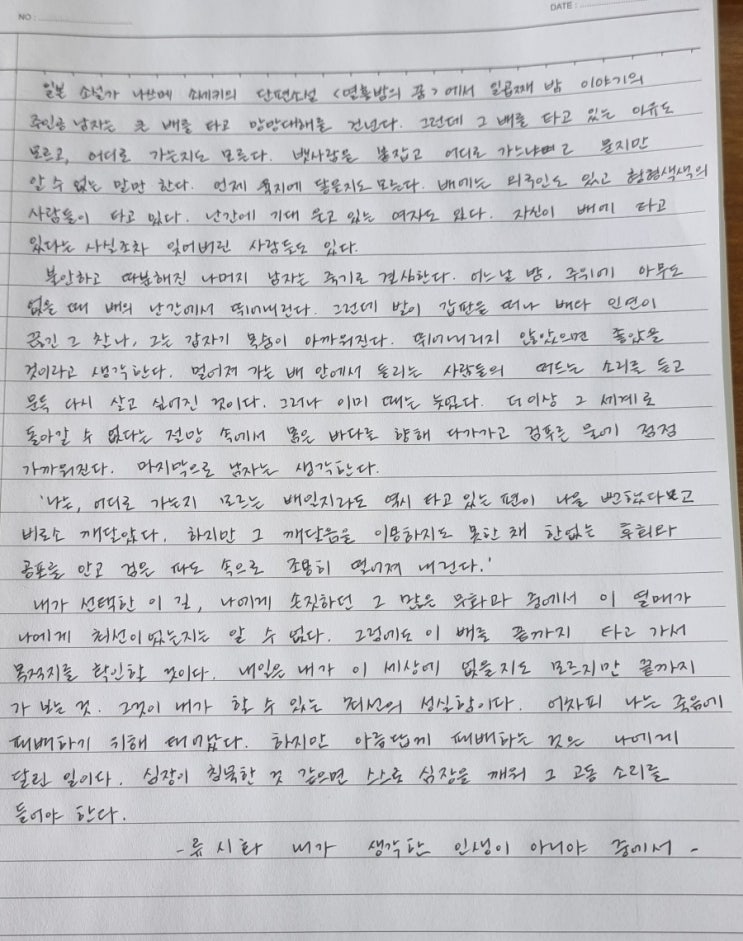 NO :
DATE :
일본 소설가 나쓰메 소세키의 단편소설 <열흘밤의 꿈>에서 일곱째 밤 이야기의
주인공 남자는 큰 배를 타고 망망대해를 건넌다. 그런데 그 배를 타고 있는 이유도
모르고, 어디로 가는지도 모른다. 뱃사람을 붙잡고 어디로 가느냐며 묻지만
알 수 없는 말만 한다. 언제 육지에 닿을지도 모른다. 배에는 외국인도 있고 형형색색의
사람들이 타고 있다. 난간에 기대 울고 있는 여자도 있다. 자신이 배에 타고
있다는 사실조차 잊어버린 사람들도 있다.
불안하고 따분해진 나머지 남자는 죽기로 결심한다. 어느날 밤, 주위에 아무도
없을 때 배의 난간에서 뛰어내린다. 그런데 발이 갑판을 떠나 배와 인연이
끊긴 그 찰나, 그는 갑자기 목숨이 아까워진다. 뛰어내리지 않았으면 좋았을
것이라고 생각한다. 멀어져 가는 배 안에서 들리는 사람들의 떠드는 소리를 듣고
문득 다시 살고 싶어진 것이다. 그러나 이미 때는 늦었다. 더이상 그 세계로
돌아갈 수 없다는 절망 속에서 몸은 바다로 향해 다가가고 검푸른 물에 점점
가까워진다. 마지막으로 남자는 생각한다.
'나는, 어디로 가는지 모르는 배일지라도 역시 타고 있는 편이 나을 뻔했다고
비로소 깨달았다. 하지만 그 깨달음을 이용하지도 못한 채 한없는 후회와
공포를 안고 검은 파도 속으로 조용히 떨어져 내린다.'
내가 선택한 이 길, 나에게 손짓하던 그 많은 무화과 중에서 이 열매가
나에게 최선이었는지는 알 수 없다. 그럼에도 이 배를 끝까지 타고 가서
목적지를 확인할 것이다. 내일은 내가 이 세상에 없을지도 모르지만 끝까지
가 보는 것. 그것이 내가 할 수 있는 최선의 성실함이다. 어차피 나는 죽음에
패배하기 위해 태어났다. 하지만 아름답게 패배하는 것은 나에게
달린 일이다. 심장이 침묵한 것 같으면 스스로 심장을 깨워 그 고동 소리를
들어야 한다.
- 류시화 내가 생각한 인생이 아니야 중에서 -